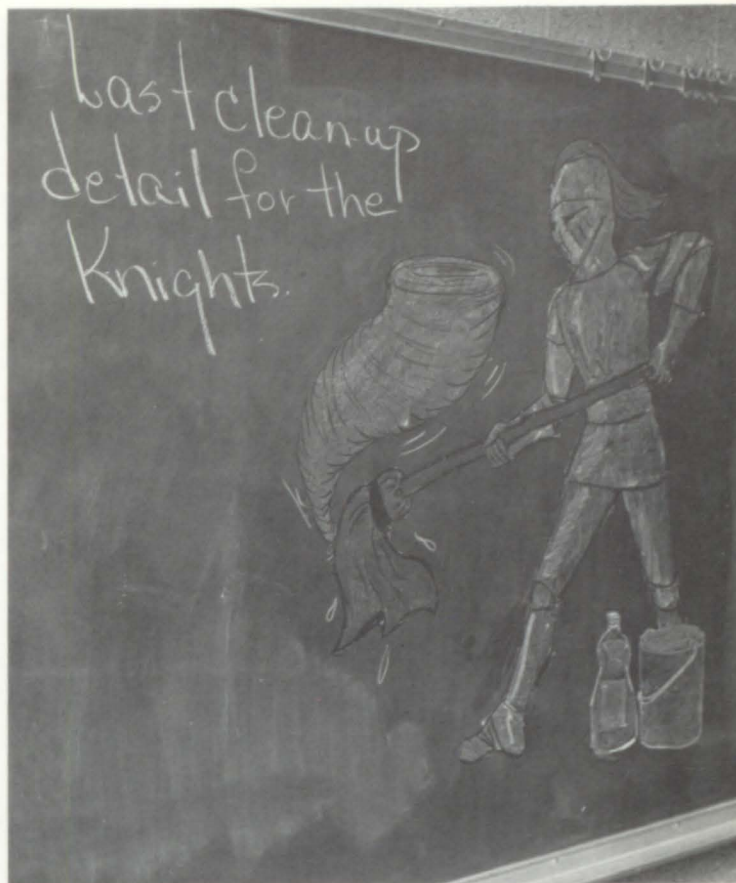 Last clean-up
detail for the
Knights.